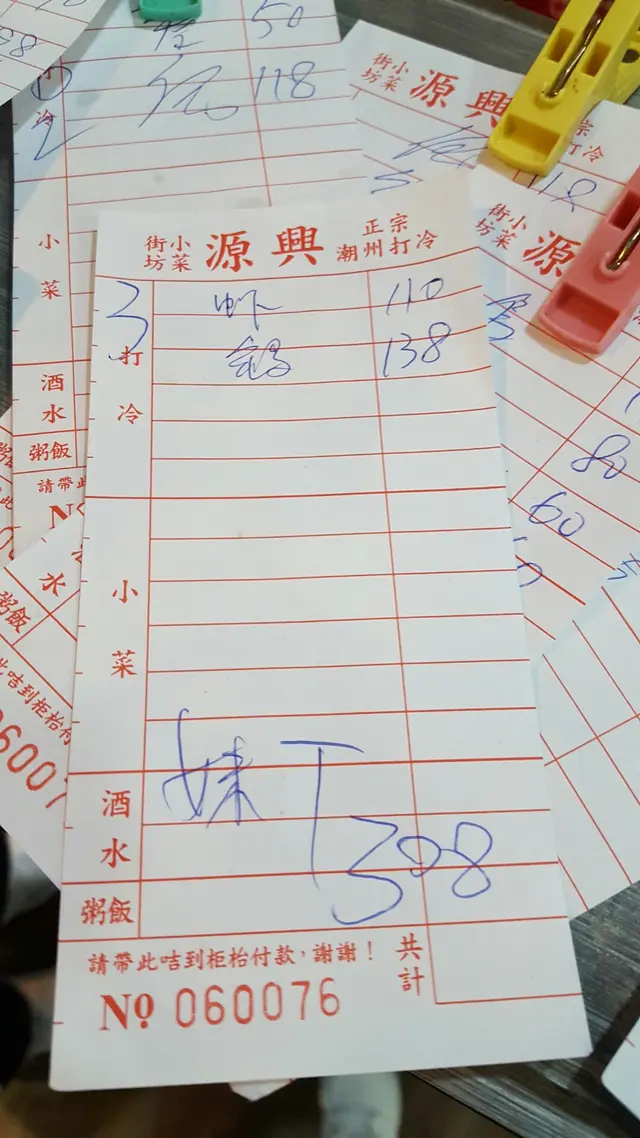 50
118
小菜
酒水
粥飯
街坊小菜 源興
打冷
街坊小菜 源
80
60
街坊小菜 源興 正宗潮州打冷
3 虾 110
138
打冷
小菜
酒水
妹 丁
308
粥飯
請帶此咭到柜枱付款，謝謝！ 共計
Nº 060076
酒水
粥飯
咭到柜枱付